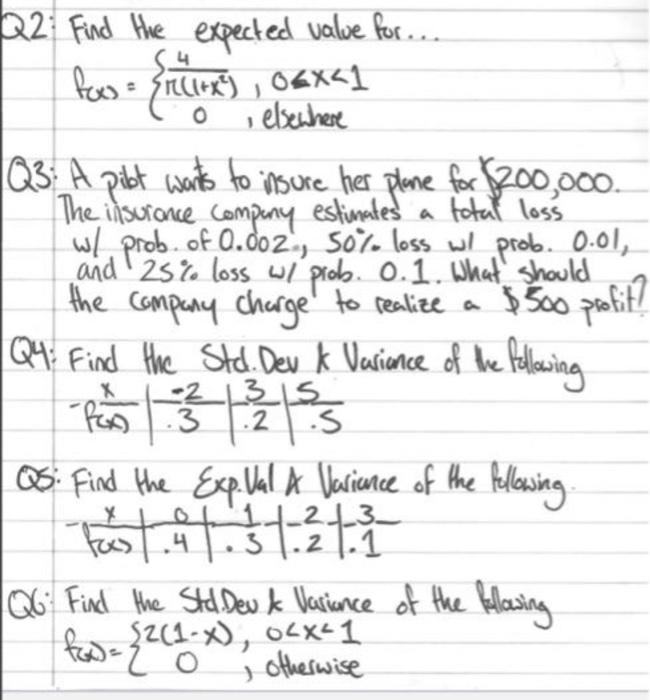 Q2: Find the expected value for...
f(x) = { 4/(π(1+x²)), 0<x<1
0, elsewhere
Q3: A pilot wants to insure her plane for $200,000.
The insurance company estimates a total loss
w/ prob. of 0.002, 50% loss w/ prob. 0.01,
and 25% loss w/ prob. 0.1. What should
the company charge to realize a $500 profit?
Q4: Find the Std.Dev & Variance of the following
x | -2 | 3 | 5
f(x) | .3 | .2 | .5
Q5: Find the Exp.Val & Variance of the following.
x | 0 | 1 | 2 | 3
f(x) | .4 | .3 | .2 | .1
Q6: Find the Std.Dev & Variance of the following
f(x) = { 2(1-x), 0<x<1
0, otherwise